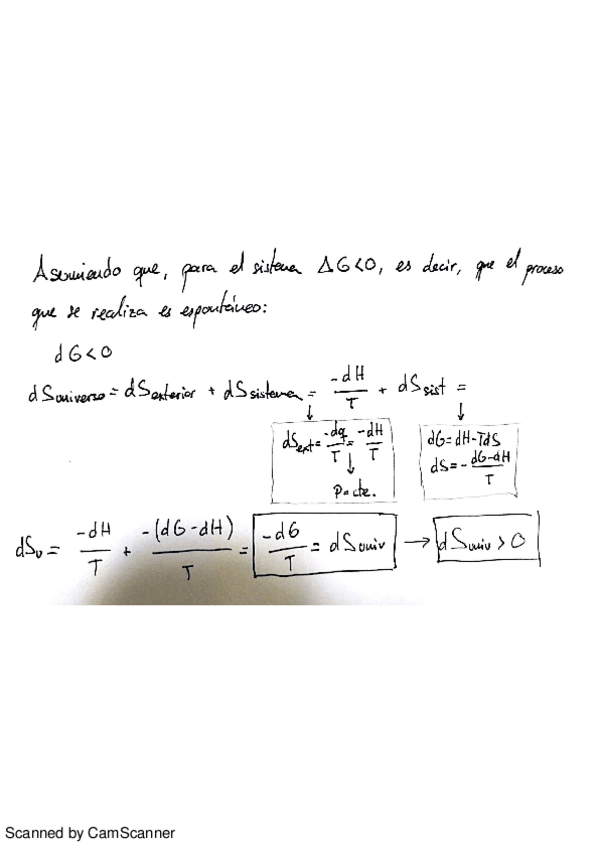 Asumiendo que, para el sistema ΔG<0, es decir, que el proceso
que se realiza es espontáneo:
dG<0
dSuniverso = dSexterior + dSsistema = -dH/T + dSsist =
↓ ↓
dSext = -dq/T = -dH/T
↓
P=cte.
dG=dH-TdS
dS=-(dG-dH)/T
dSu = -dH/T + -(dG-dH)/T = -dG/T = dSuniv → dSuniv > 0
Scanned by CamScanner